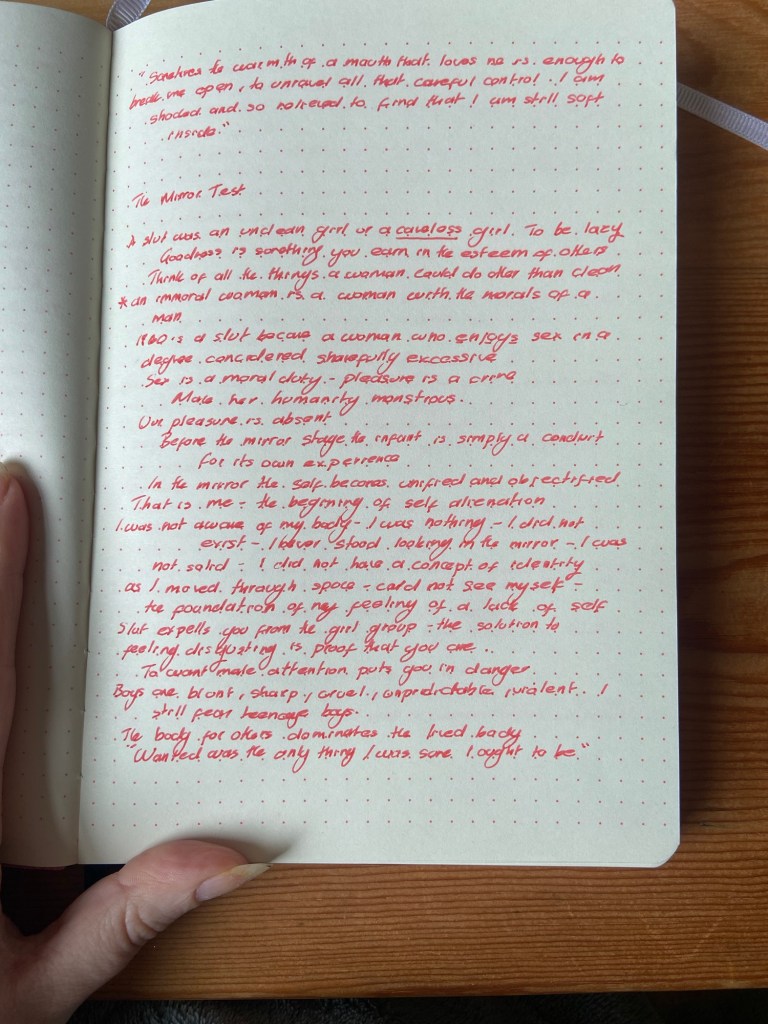 "Sometimes the warmth of a mouth that loves me is enough to
break me open, to unravel all that careful control. I am
shocked and so relieved to find that I am still soft
inside."
The Mirror Test
A slut was an unclean girl or a careless girl. To be lazy
Goodness is something you earn in the esteem of others
Think of all the things a woman could do other than clean
* an immoral woman is a woman with the morals of a
man
1960 is a slut became a woman who enjoys sex in a
degree considered shamefully excessive
Sex is a moral duty - pleasure is a crime
Make her humanity monstrous.
Our pleasure is absent
Before the mirror stage the infant is simply a conduit
for its own experience
In the mirror the self becomes unified and objectified
That is me - the begining of self alienation
I was not aware of my body - I was nothing - I did not
exist - I never stood looking in the mirror - I was
not solid - I did not have a concept of identity
as I moved through space - could not see myself -
the foundation of my feeling of a lack of self
Slut expells you from the girl group - the solution to
feeling disgusting is proof that you are
To want male attention puts you in danger
Boys are blunt, sharp, cruel, unpredictable, violent. I
still fear teenage boys.
The body for others dominates the lived body
"Wanted was the only thing I was sure I ought to be"